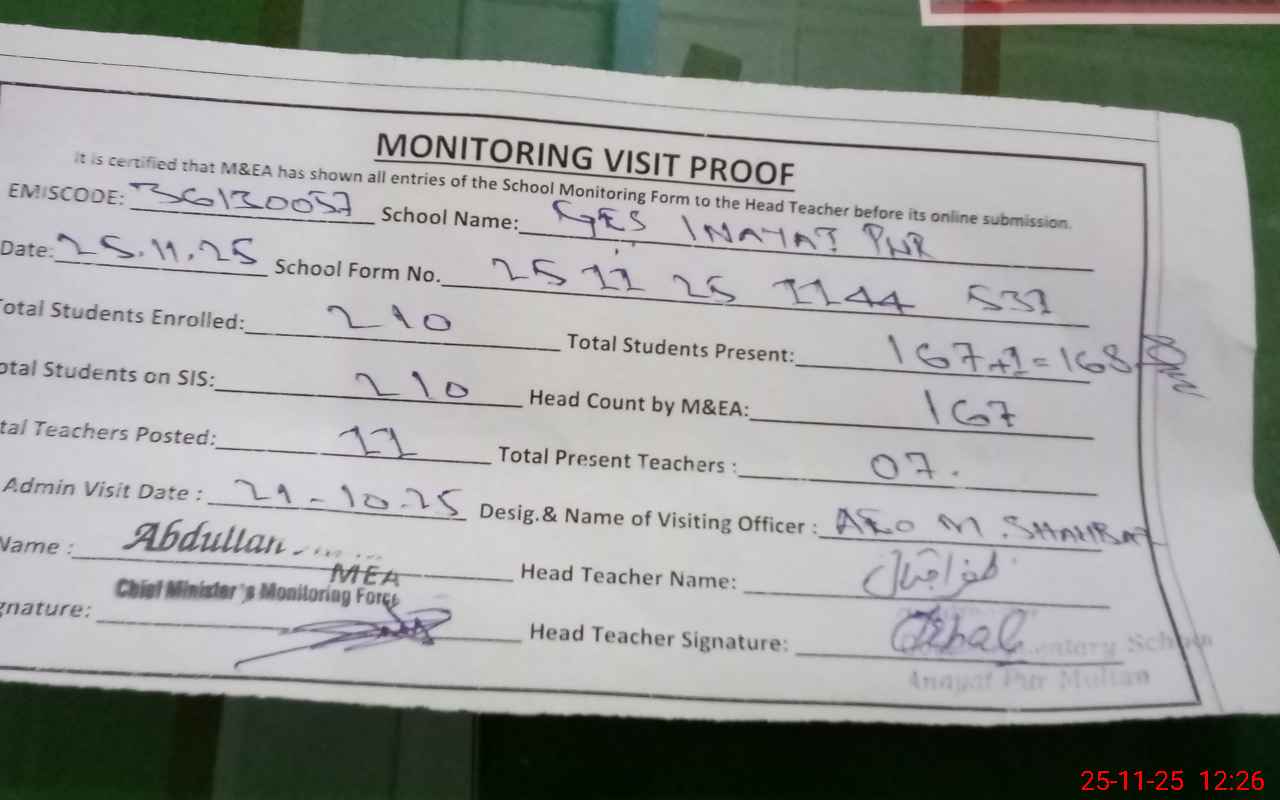 MONITORING VISIT PROOF
It is certified that M&EA has shown all entries of the School Monitoring Form to the Head Teacher before its online submission.
EMISCODE: 36130057 School Name: GES INAYAT PUR
Date: 25.11.25 School Form No. 25 11 25 1144 531
otal Students Enrolled: 210 Total Students Present: 167+1=168
otal Students on SIS: 210 Head Count by M&EA: 167
tal Teachers Posted: 11 Total Present Teachers : 07.
Admin Visit Date : 21-10-25 Desig.& Name of Visiting Officer : AEO M. SHAHBAZ
Name : Abdullah MEA Head Teacher Name: ظفر اقبال
Chief Minister's Monitoring Force
gnature: Head Teacher Signature:
entary School
Anayat Pur Multan
25-11-25 12:26